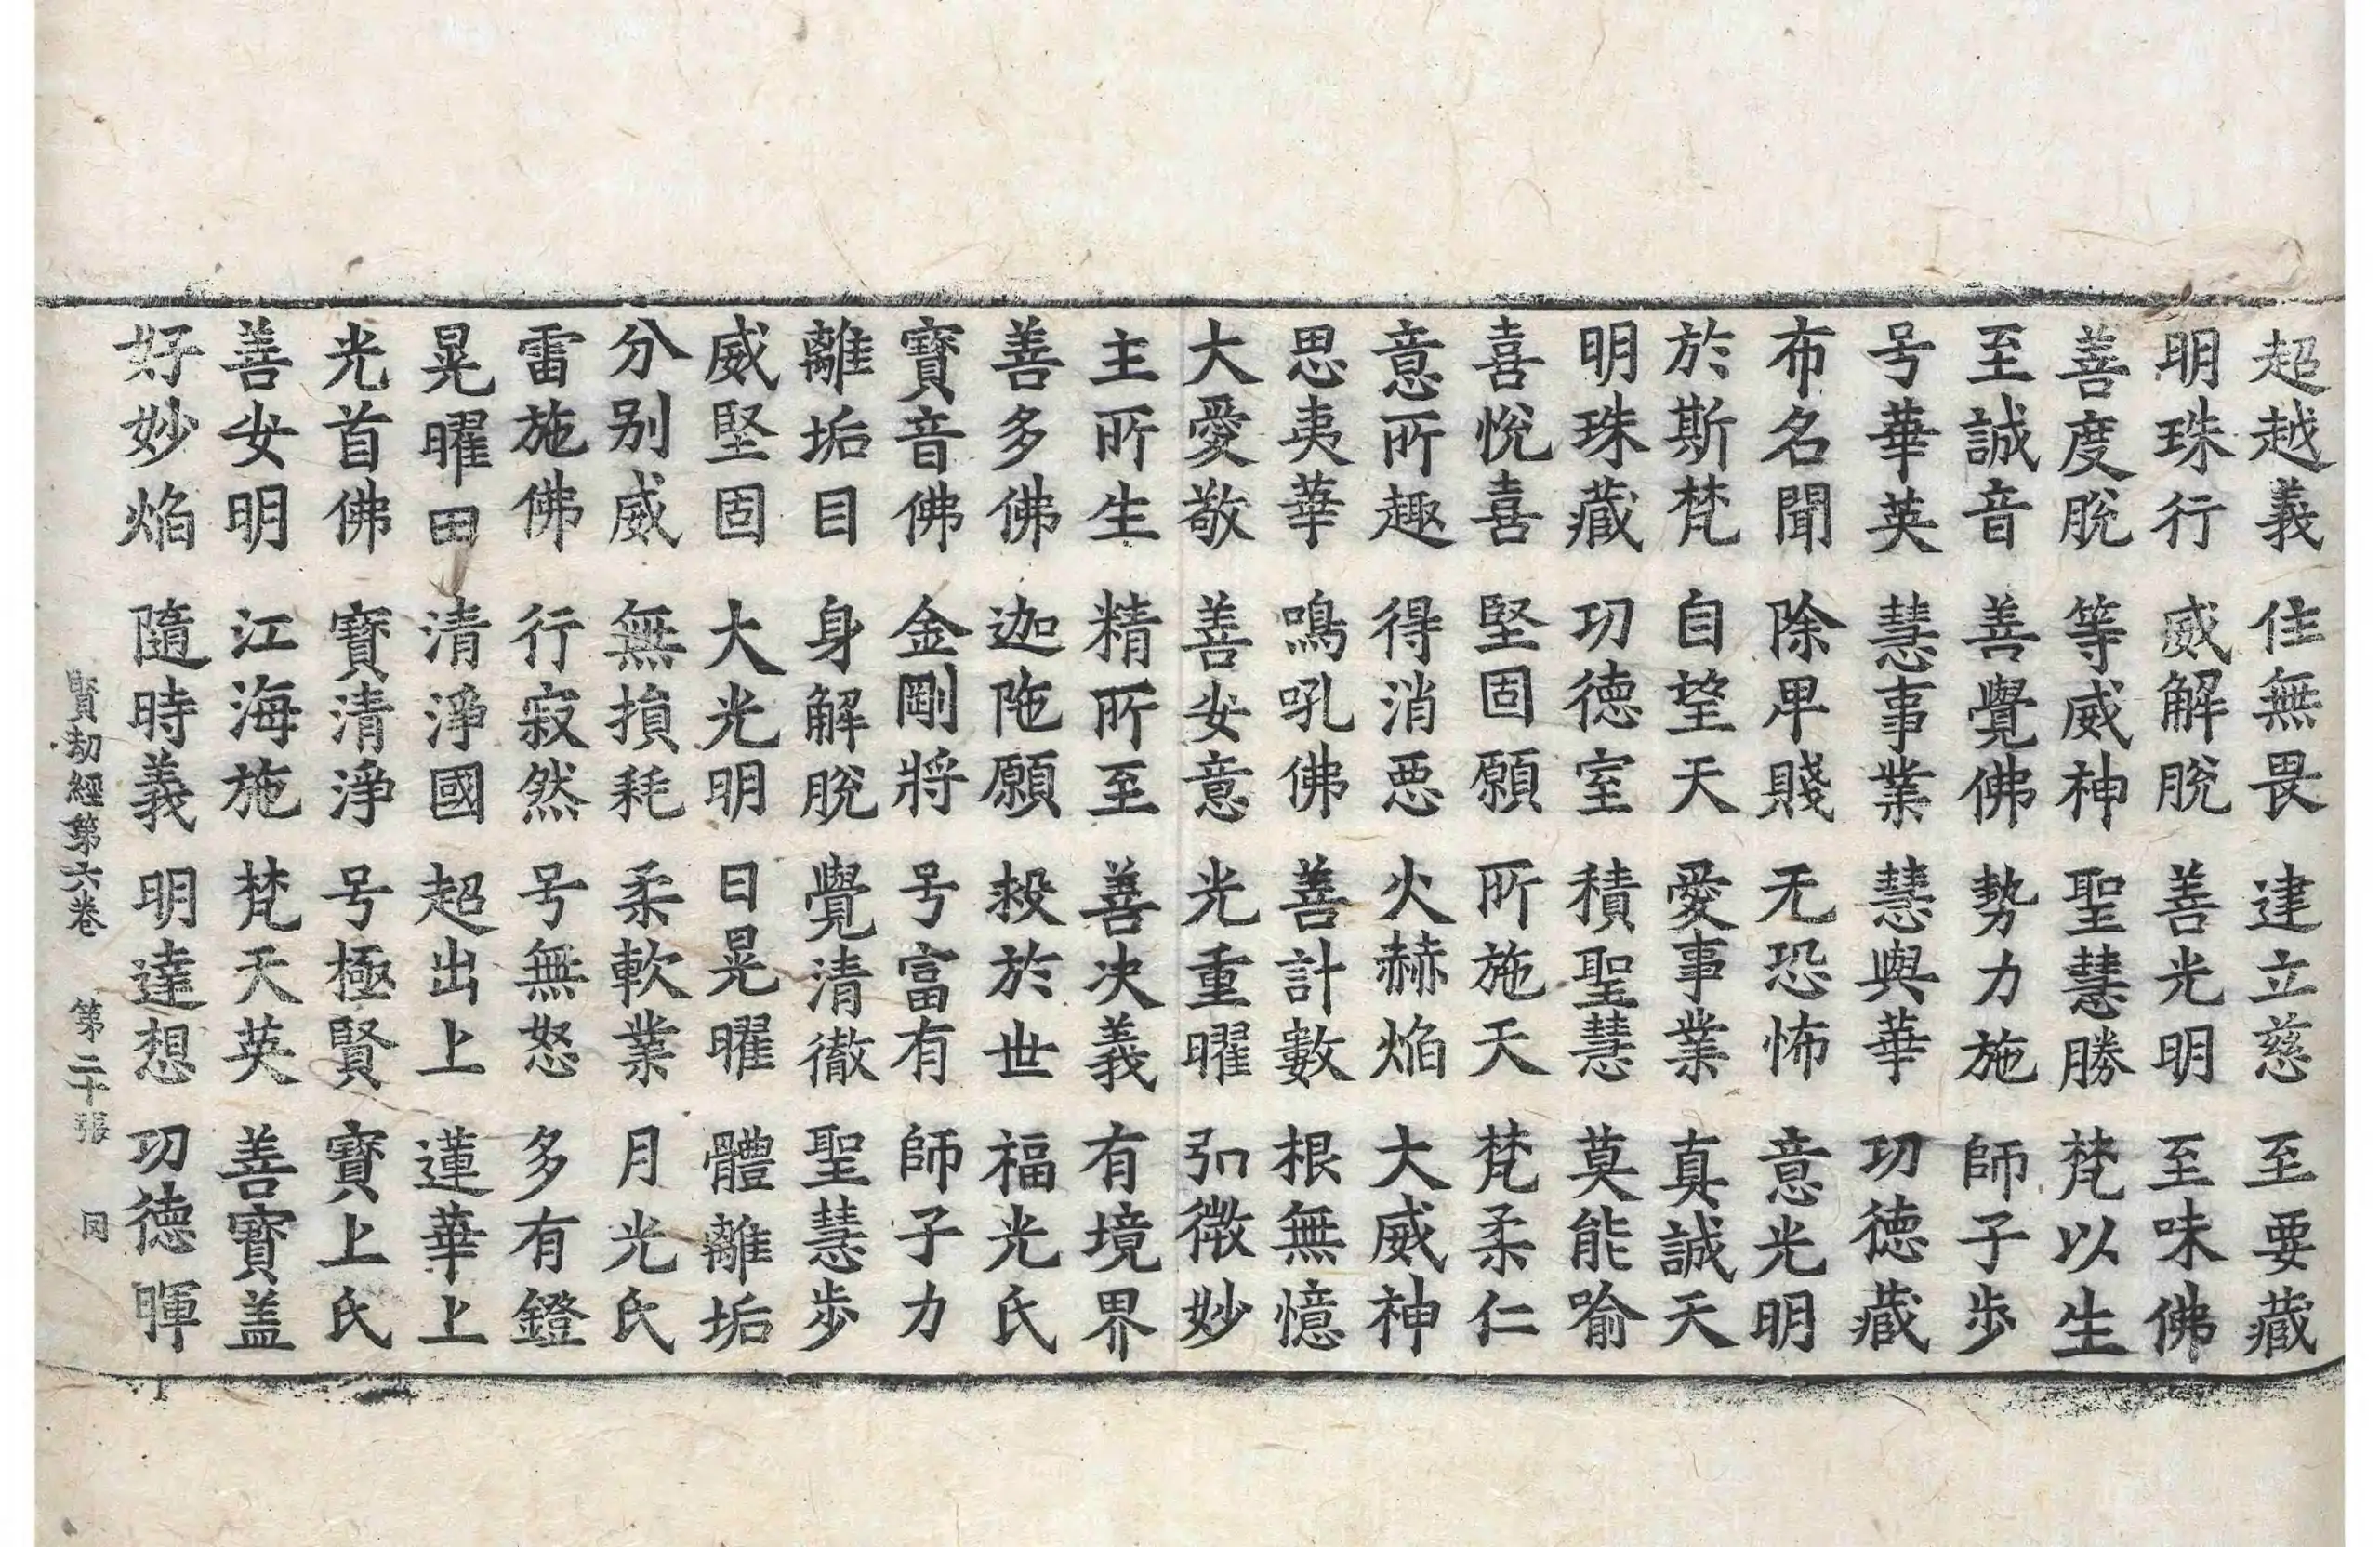 超越義 佳無畏 建立慈 至要藏
明珠行 威解脫 善光明 至味佛
善度脫 等威神 聖慧勝 梵以生
至誠音 善覺佛 勢力施 師子步
号華英 慧事業 慧與華 功德藏
布名聞 除卑賤 无恐怖 意光明
於斯梵 自望天 愛事業 真誠天
明珠藏 功德室 積聖慧 莫能喻
喜悅喜 堅固願 所施天 梵柔仁
意所趣 得消惡 火赫焰 大威神
思夷華 鳴吼佛 善計數 根無憶
大愛敬 善女意 光重曜 弘微妙
主所生 精所至 善决義 有境界
善多佛 迦陁願 敎於世 福光氏
寶音佛 金剛將 号富有 師子力
離垢目 身解脫 覺清徹 聖慧步
威堅固 大光明 日晃曜 體離垢
分别威 無損耗 柔軟業 月光氏
雷施佛 行寂然 号無怒 多有鐙
晃曜田 清淨國 超出上 蓮華上
光首佛 寶清淨 号極賢 寶上氏
善女明 江海施 梵天英 善寶盖
好妙焰 隨時義 明達想 功德暉
賢劫經第六卷 第二十張 同